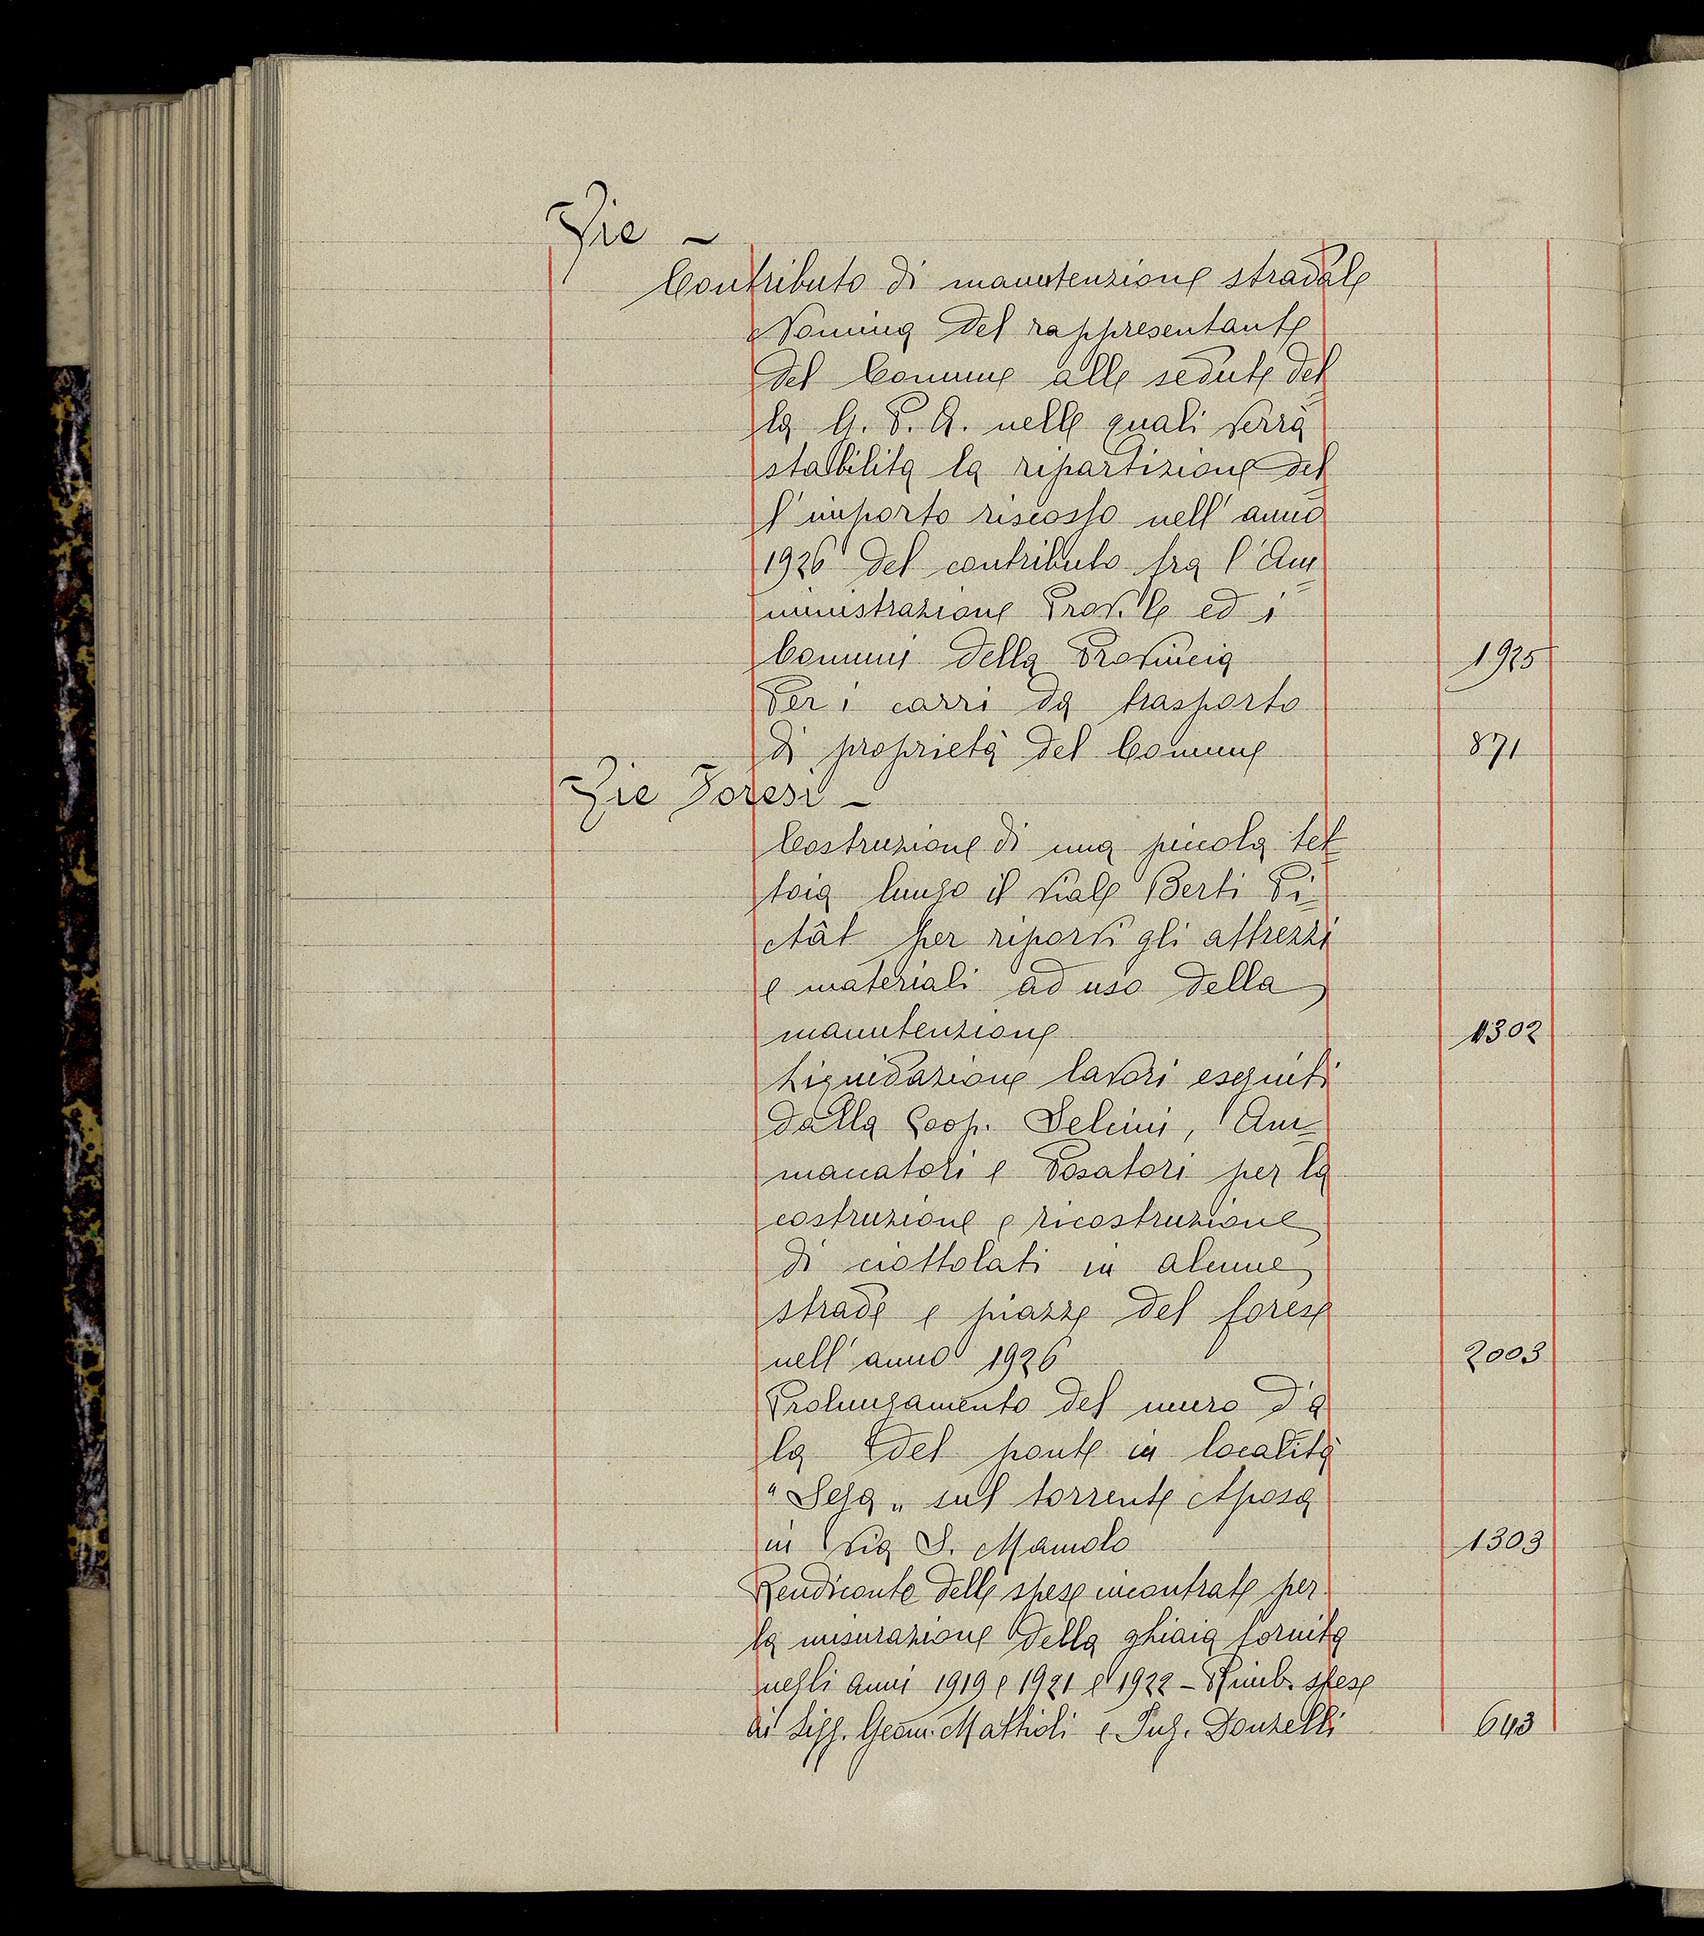 Vie -
Contributo di manutenzione stradale
Nomina del rappresentante
del Comune alle sedute del=
la G. P. A. nelle quali verrà
stabilita la ripartizione del=
l'importo riscosso nell'anno
1926 del contributo fra l'Am=
ministrazione Prov.le ed i
Comuni della Provincia 1925
Per i carri da trasporto
di proprietà del Comune 871
Vie Foresi -
Costruzione di una piccola tet=
toia lungo il viale Berti Pi=
chât per riporvi gli attrezzi
e materiali ad uso della
manutenzione 1302
Liquidazione lavori eseguiti
dalla Coop. Selcini, Am=
maccatori e Posatori per la
costruzione e ricostruzione
di ciottolati in alcune
strade e piazze del forese
nell'anno 1926 2003
Prolungamento del muro d'a
la del ponte in località
"Sega„ sul torrente Aposa
in via S. Mamolo 1303
Rendiconto delle spese incontrate per
la misurazione della ghiaia fornita
negli anni 1919 e 1921 e 1922 - Rimb. spese
ai Sigg. Geom. Mattioli e Ing. Donzelli 643